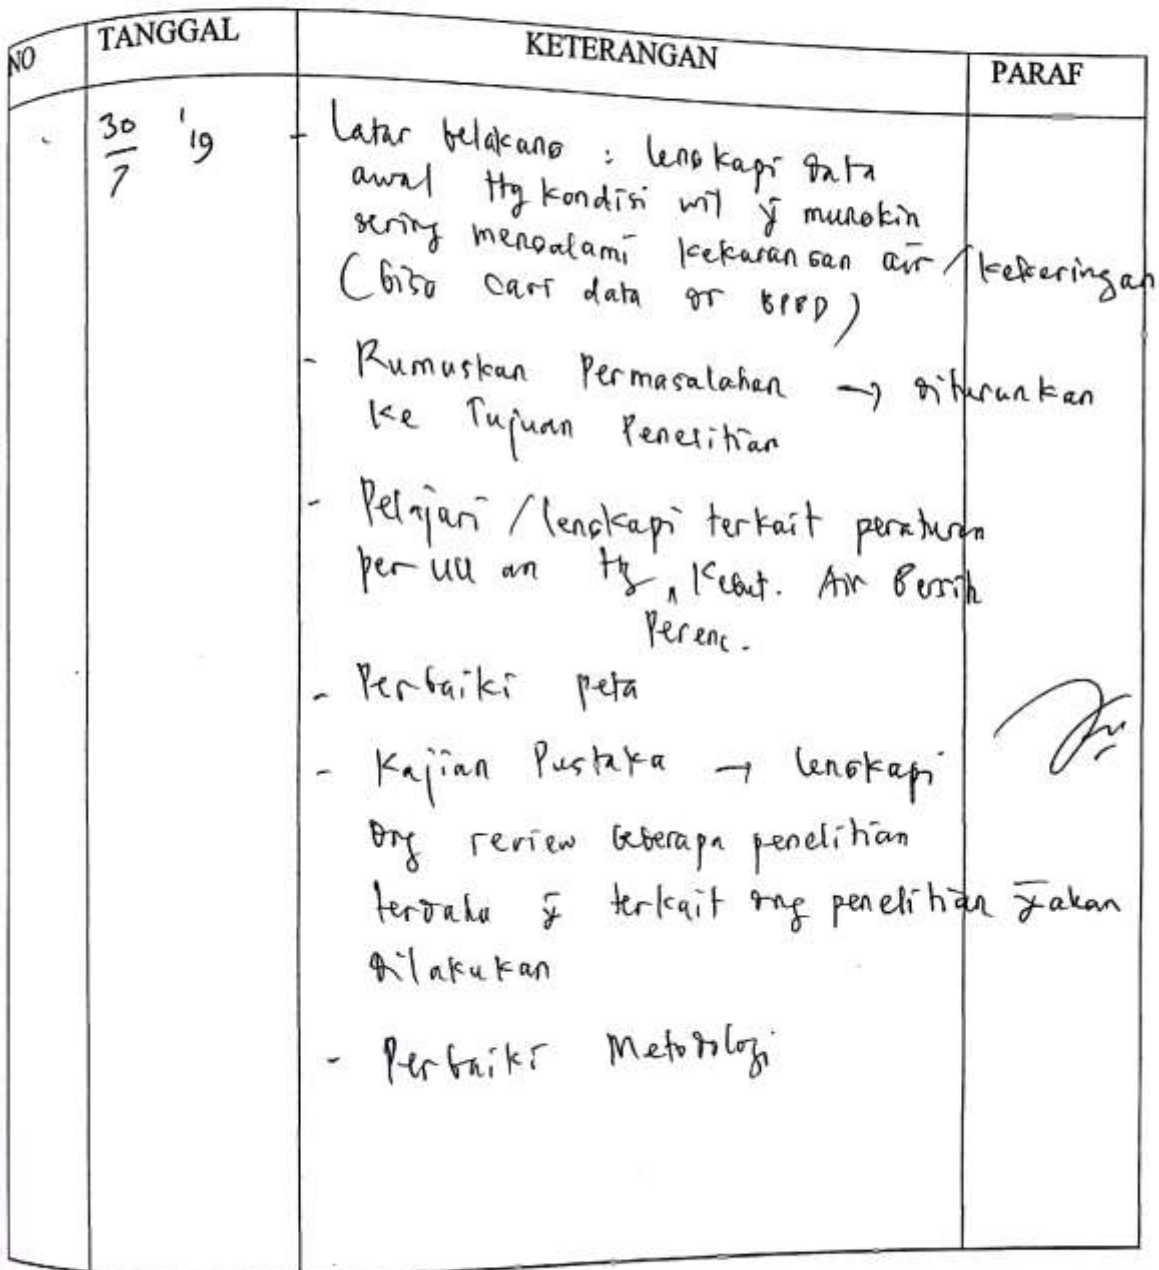 NO TANGGAL KETERANGAN PARAF
30/7 '19
- Latar belakang : lengkapi data
awal ttg kondisi wil yg mungkin
sering mengalami kekurangan air / kekeringan
(bisa cari data dr BPBD)
- Rumuskan Permasalahan → diturunkan
ke Tujuan Penelitian
- Pelajari / lengkapi terkait peraturan
per UU an ttg ^ Kebut. Air Bersih
Perenc.
- Perbaiki peta
- Kajian Pustaka → lengkapi
dng review beberapa penelitian
terdahulu yg terkait dng penelitian yg akan
dilakukan
- Perbaiki Metodologi